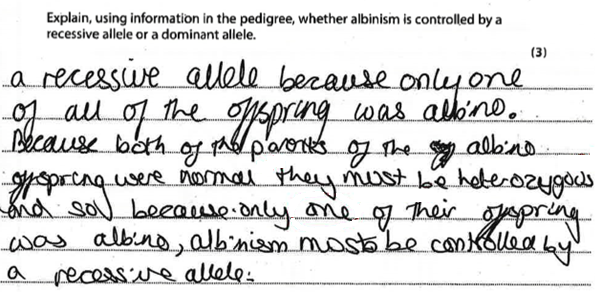 Explain, using information in the pedigree, whether albinism is controlled by a
recessive allele or a dominant allele.
(3)
a recessive allele because only one
of all of the offspring was albino.
Because both of the parents of the albino
offspring were normal they must be heterozygous
and so because only one of their offspring
was albino, albinism must be controlled by
a recessive allele.